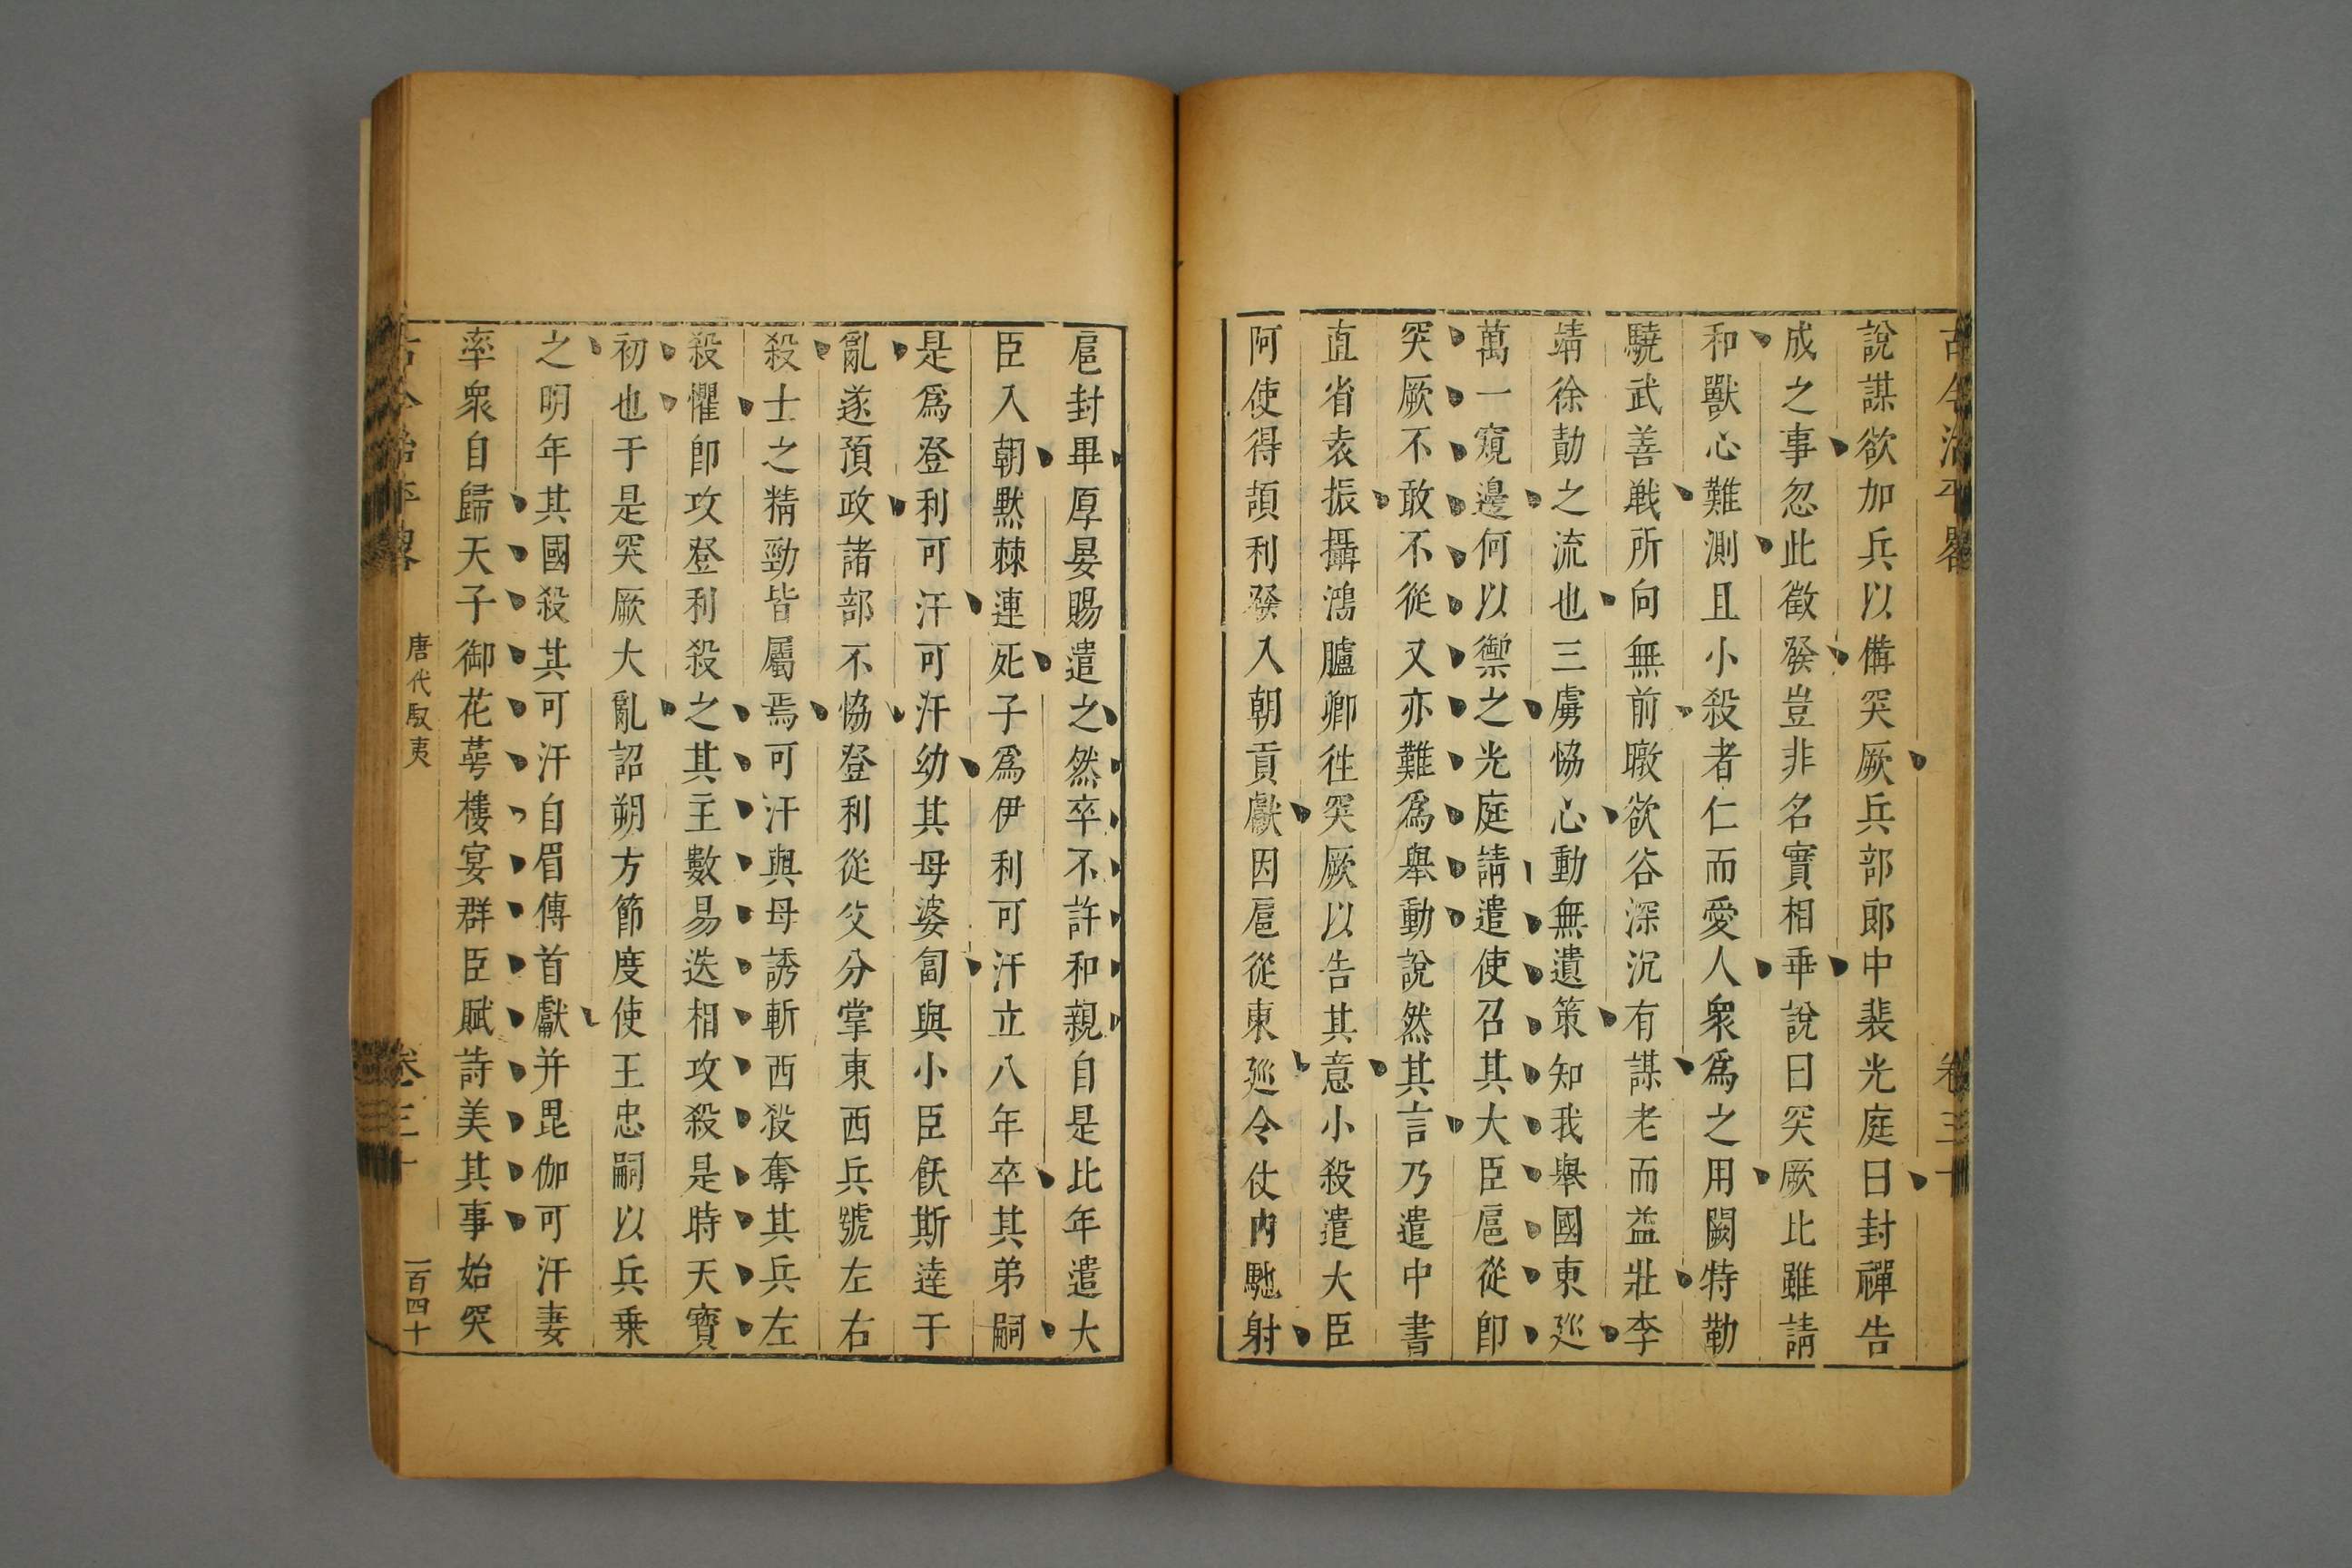 古今治平畧 卷三十
說謀欲加兵以備突厥兵部郎中裴光庭曰封禪告
成之事忽此徵發豈非名實相乖說曰突厥比雖請
和獸心難測且小殺者仁而愛人衆爲之用闕特勒
驍武善戰所向無前暾欲谷深沉有謀老而益壯李
靖徐勣之流也三虜恊心動無遺策知我舉國東廵
萬一窺邊何以禦之光庭請遣使召其大臣扈從即
突厥不敢不從又亦難爲舉動說然其言乃遣中書
直省袁振攝鴻臚卿徃突厥以告其意小殺遣大臣
阿使得頡利發入朝貢獻因扈從東廵令仗內馳射
扈封畢厚宴賜遣之然卒不許和親自是比年遣大
臣入朝默棘連死子爲伊利可汗立八年卒其弟嗣
是爲登利可汗可汗幼其母婆匐與小臣飫斯達于
亂遂預政諸部不恊登利從父分掌東西兵號左右
殺士之精勁皆屬焉可汗與母誘斬西殺奪其兵左
殺懼即攻登利殺之其主數易迭相攻殺是時天寶
初也于是突厥大亂詔朔方節度使王忠嗣以兵乗
之明年其國殺其可汗自眉傳首獻并毘伽可汗妻
率衆自歸天子御花萼樓宴群臣賦詩美其事始突
古今治平畧 唐代馭夷 卷三十 一百四十